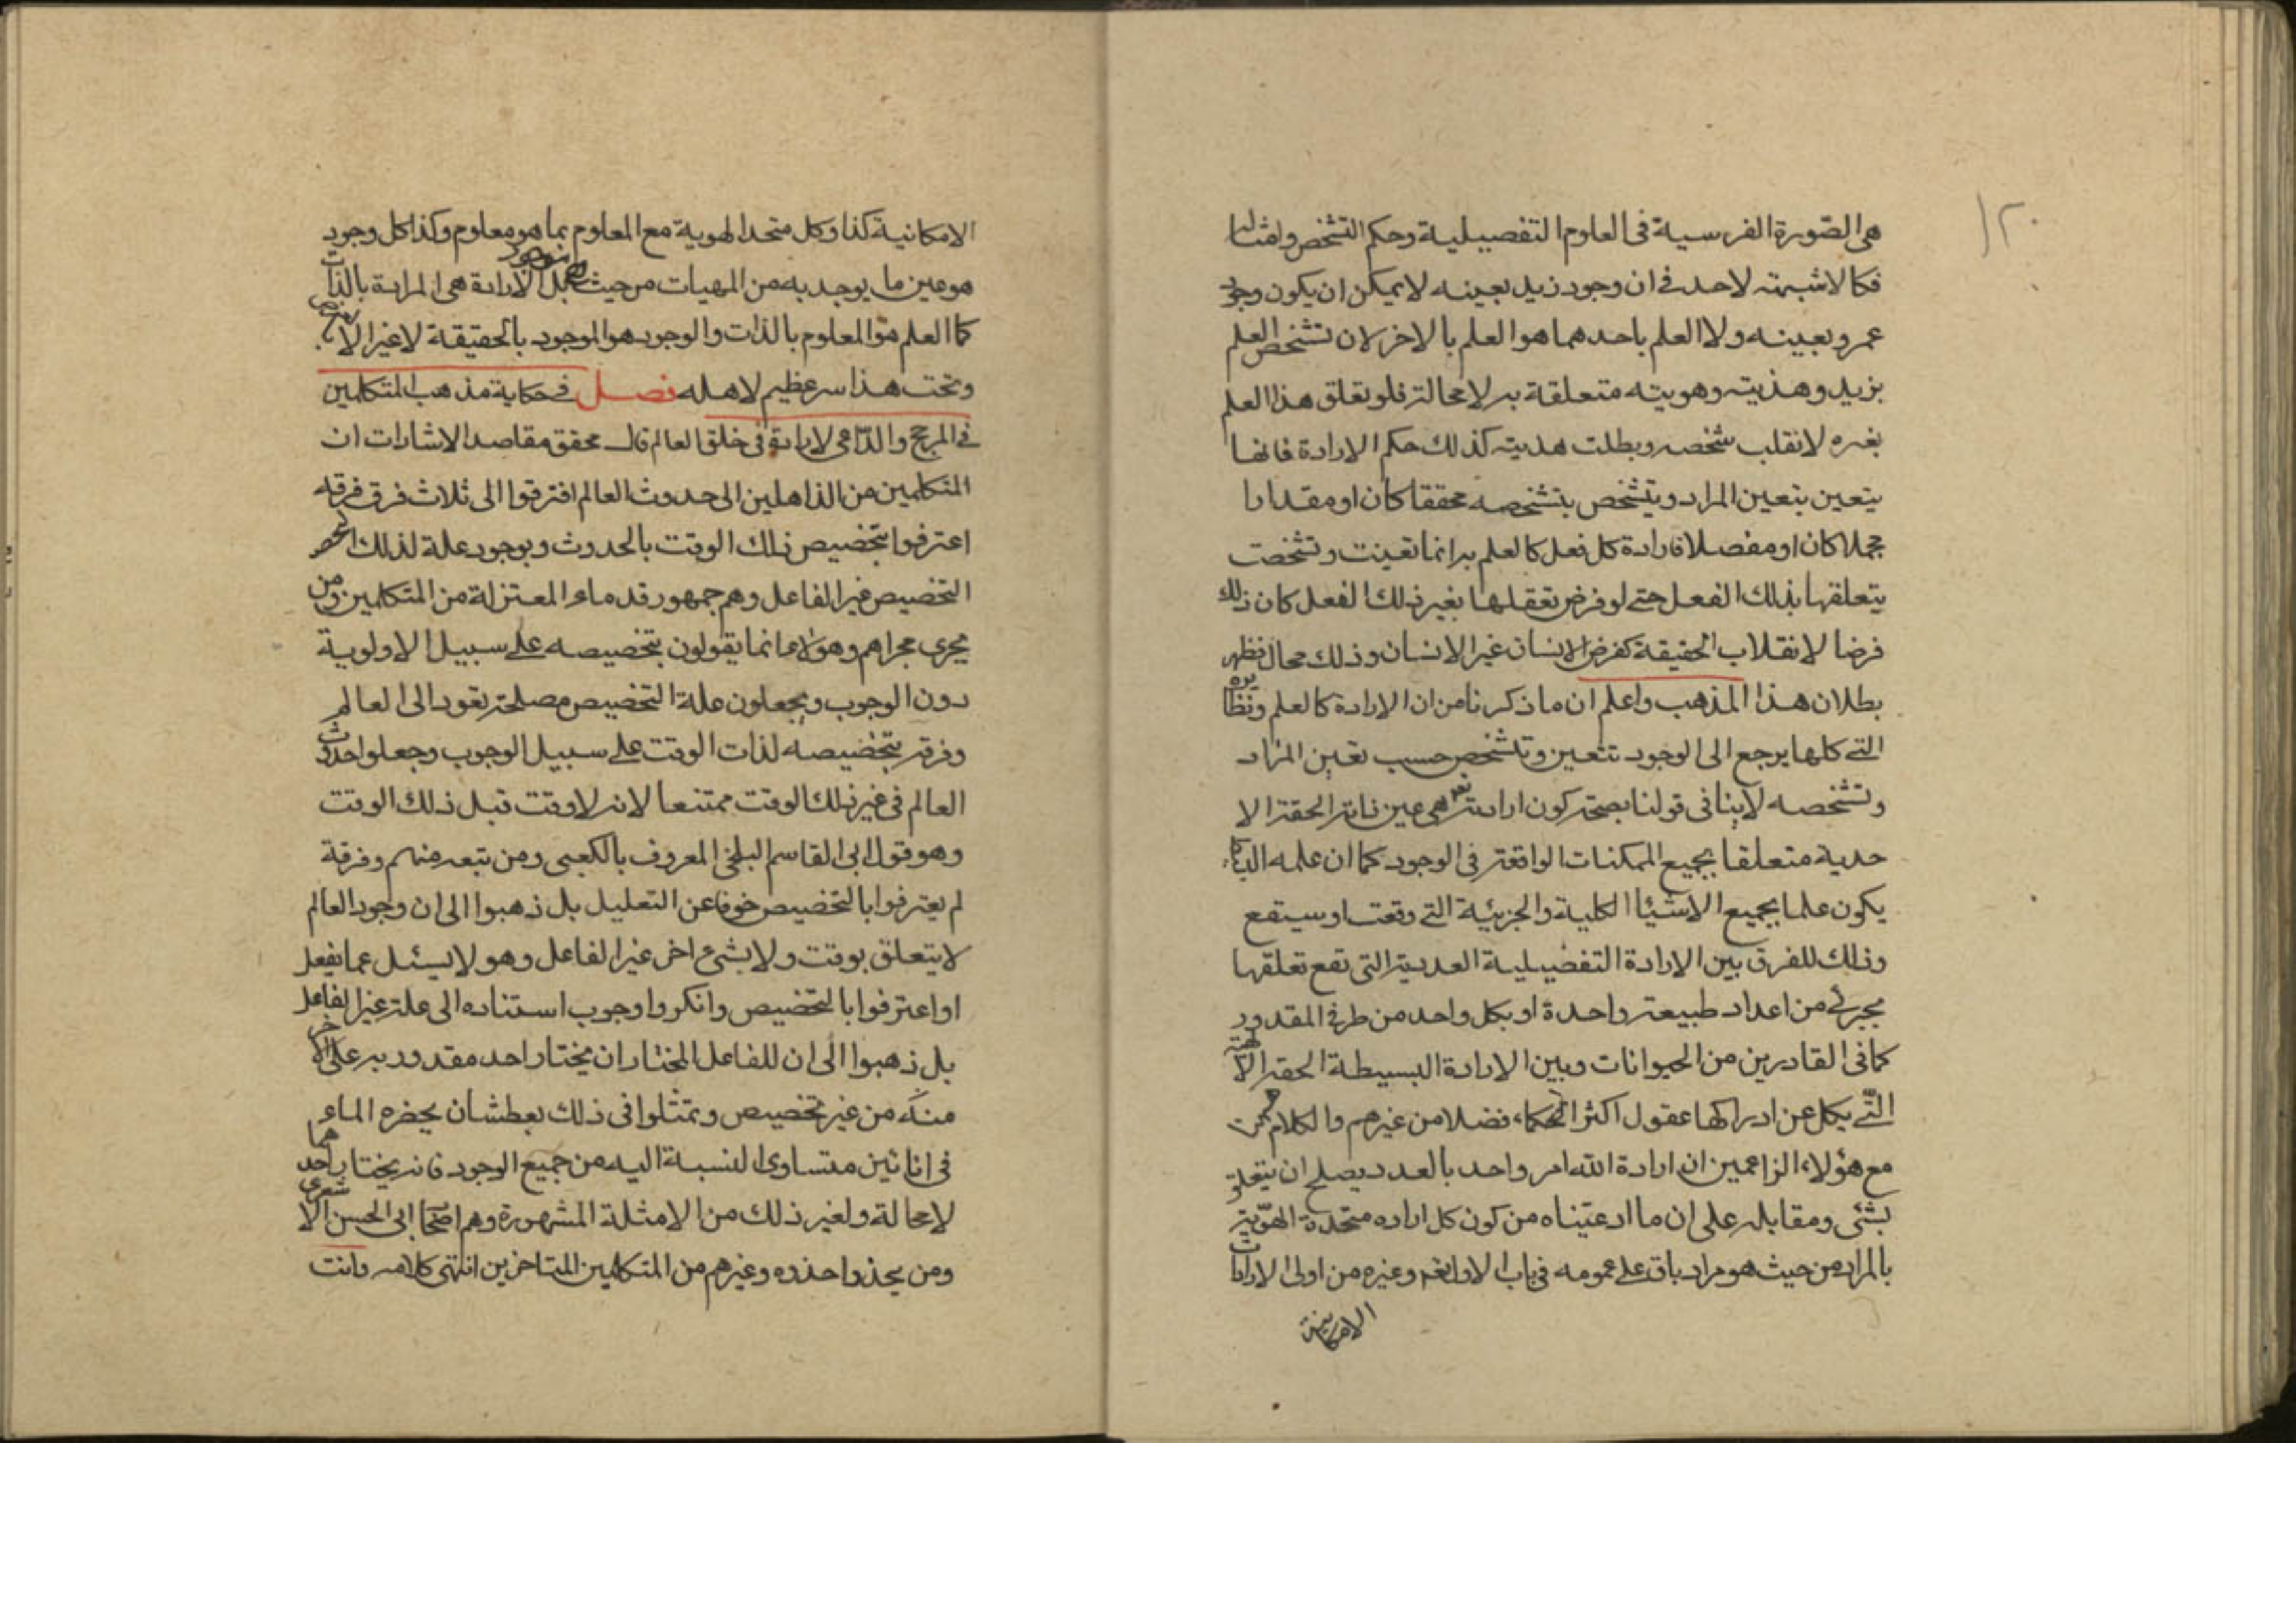 ١٢٠
هى الصّورة الفرسية فى العلوم التفصيلية وحكم التشخص وامثالها
فكما لا شبهة لاحد فى ان وجود زيد بعينه لا يمكن ان يكون وجود
عمرو بعينه ولا العلم باحدهما هو العلم بالاخر لان تشخص العلم
بزيد وهذيته وهويته متعلقة به لا محالة فلو تعلق هذا العلم
بغيره لانقلب شخصه وبطلت هذيته كذلك حكم الارادة فانها
يتعين بتعين المراد ويتشخص بتشخصه محققا كان او مقدارا
مجملا كان او مفصلا فارادة كل فعل كالعلم به انما تعينت وتشخصت
بتعلقها بذلك الفعل حتى لو فرض تعقلها بغير ذلك الفعل كان ذلك
فرضا لانقلاب الحقيقة كفرض الانسان غير الانسان وذلك محال فظهر
بطلان هذا المذهب واعلم ان ما ذكرنا من ان الارادة كالعلم ونظايره
التى كلها يرجع الى الوجود تتعين وتتشخص حسب تعين المراد
وتشخصه لا ينافى قولنا بصحة كون ارادته تعالى هى عين ذاته الحقة الا
حدية متعلقا بجميع الممكنات الواقعة فى الوجود كما ان علمه
يكون علما بجميع الاشيا الكلية والجزئية التى وقعت او سيقع
وذلك للفرق بين الارادة التفضيلية العددية التى تقع تعلقها
بجزئى من اعداد طبيعة واحدة او بكل واحد من طرفى المقدور
كما فى القادرين من الحيوانات وبين الارادة البسيطة الحقة الالهية
التّى يكل عن ادراكها عقول اكثر الحكماء فضلا من غيرهم والكلام
مع هؤلاء الزاعمين ان ارادة الله امر واحد بالعدد يصلح ان يتعلق
بشئى ومقابله على ان ما ادعيناه من كون كل اراده متحدة الهوّية
بالمراد من حيث هو مراد باق على عمومه فى باب الارادة وغيره من اولى الارادات
الامكانية
الامكانية كذا وكل متحد الهوية مع المعلوم بما هو معلوم وكذا كل وجود
هو عين ما يوجد به من المهيات من حيث هو موجود بل الارادة هى المرادة بالذات
كما العلم هو المعلوم بالذات والوجود هو الموجود بالحقيقة لا غير الا بالعرض
وتحت هذا سر عظيم لاهله فصل فى حكاية مذهب المتكلمين
فى المرجح والدّاعى لارادة فى خلق العالم قال محقق مقاصد الاشارات ان
المتكلمين من الذاهلين الى حدوث العالم افترقوا الى ثلاث فرق فرقه
اعترفوا بتخصيص ذلك الوقت بالحدوث وبوجود علة لذلك
التخصيص غير الفاعل وهم جمهور قدماء المعتزلة من المتكلمين ومن
يجرى مجراهم وهؤلاء انما يقولون بتخصيصه على سبيل الاولوية
دون الوجوب ويجعلون علة التخصيص مصلحة تعود الى العالم
وفرقة بتخصيصه لذات الوقت على سبيل الوجوب وجعلوا حدوث
العالم فى غير ذلك الوقت ممتنعا لانه لا وقت قبل ذلك الوقت
وهو قول ابى القاسم البلخى المعروف بالكعبى ومن تبعه منهم وفرقة
لم يعترفوا بالتخصيص خوفا عن التعليل بل ذهبوا الى ان وجود العالم
لا يتعلق بوقت ولا بشئ اخر غير الفاعل وهو لا يسئل عما يفعل
او اعترفوا بالتخصيص وانكروا وجوب استناده الى علة غير الفاعل
بل ذهبوا الى ان للفاعل المختار ان يختار احد مقدوريه على الاخر
منه من غير تخصيص وتمثلوا فى ذلك بعطشان يحضره الماء
فى انائين متساوى النسبة اليه من جميع الوجود فانه يختار احدهما
لا محالة ولغير ذلك من الامثلة المشهورة وهم اصحاب ابى الحسن الاشعرى
ومن يحذوا حذوه وغيرهم من المتكلمين المتاخرين انتهى كلامه وانت